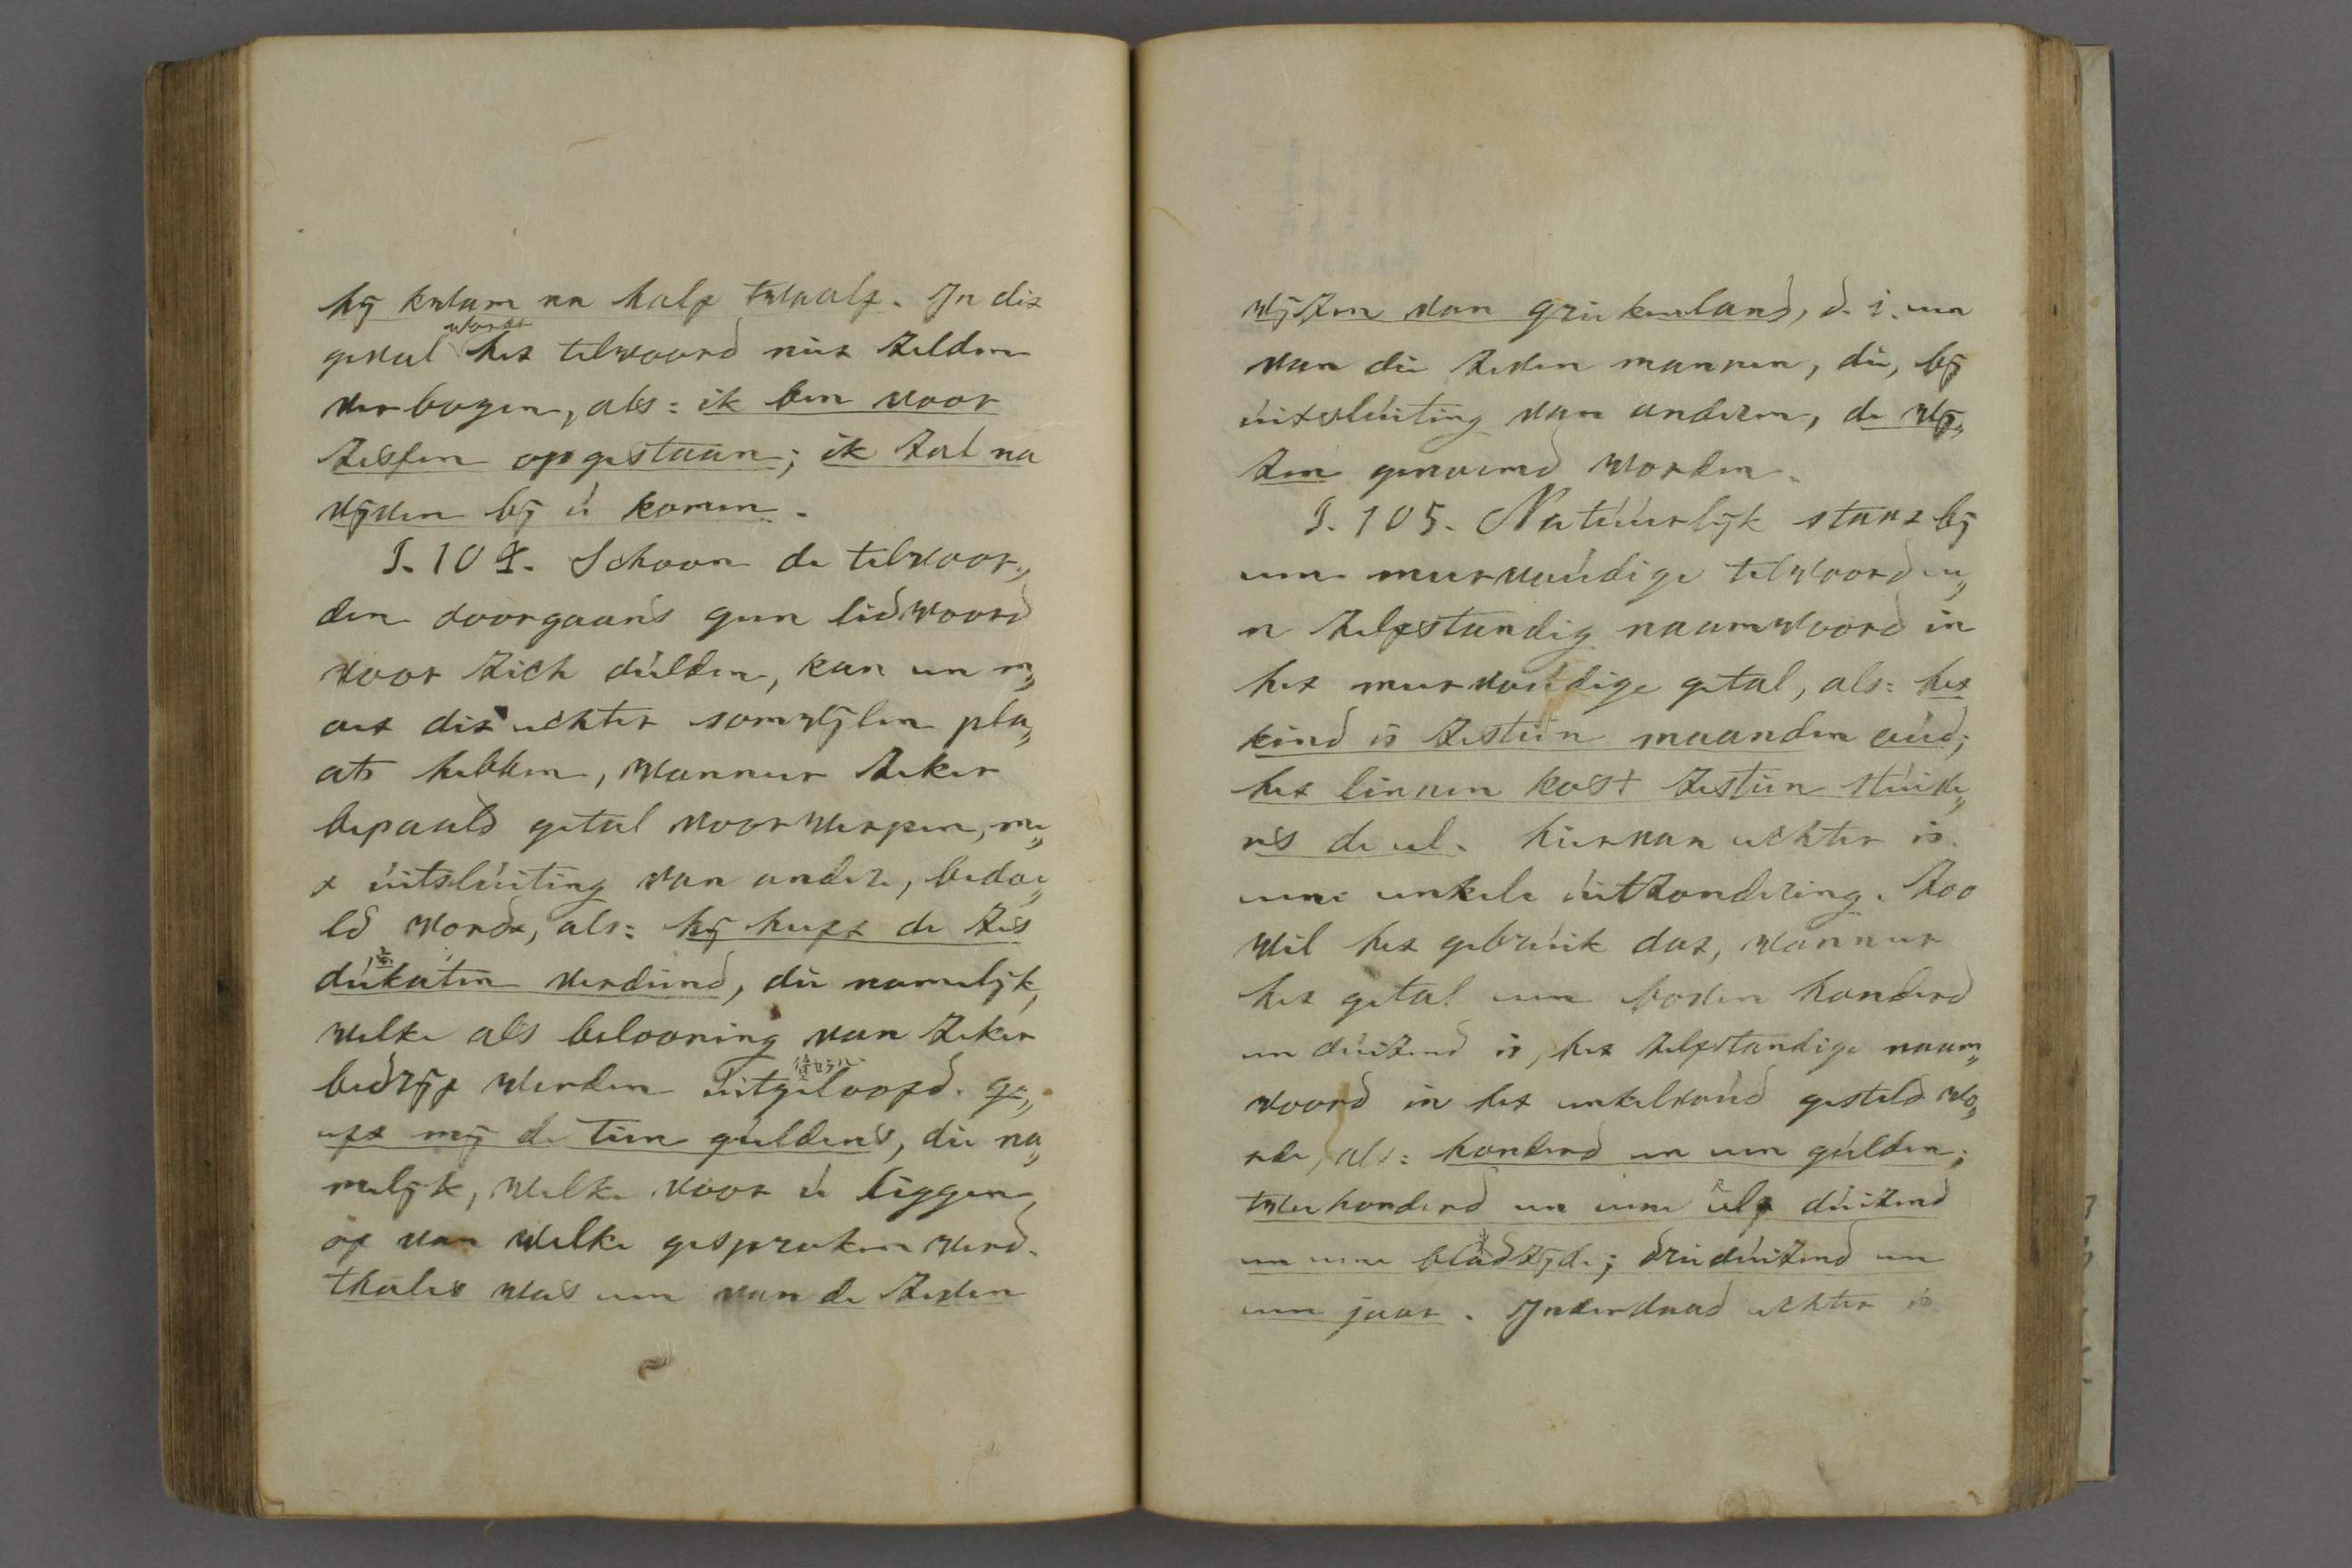 hij kwam na half twaalf. In dit
wordt
geval het telwoord niet zelden
verbogen, als: ik ben voor
zessen opgestaan; ik zal na
vijven bij ú komen.
§. 104. Schoon de telwoor„
den doorgaans geen lidwoord
voor zich dúlden, kan een m„
oet dit echter somwijlen pla„
ats hebben, wanneer zeker
bepaald getal voorwerpen, me„
t úitslúiting van andere, bedoe„
ld wordt, als: hij heeft de zes
dúkaten verdiend, die namelijk,
welke als belooning van zeker
bedrijf werden úitgeloofd. ge„
eft mij de tien gúldens, die na„
melijk, welke voor ú liggen,
of van welke gesproken werd.
thales was een van de zeven
wijzen van griekenland, d. i. een
van die zeven mannen, die, bij
úitslúiting van anderen, de wij„
zen genoemd worden.
§. 105. Natúúrlijk staat bij
een meervoúdige telwoord ee„
n zelfstandig naamwoord in
het meervoúdige getal, als: het
kind is zestien maanden oúd;
het linnen kost zestien stúive„
rs de el. hiervan echter is
eene enkele úitzondering. Zoo
wil het gebrúik dat, wanneer
het getal een boven honderd
en dúizend is, het zelfstandige naam„
woord in het enkelvoúd gesteld wo„
rde, als: honderd en een gúlden;
tweehonderd en eene el; dúizend
en eene bladzijde; driedúizend en
een jaar. Inderdaad echter is